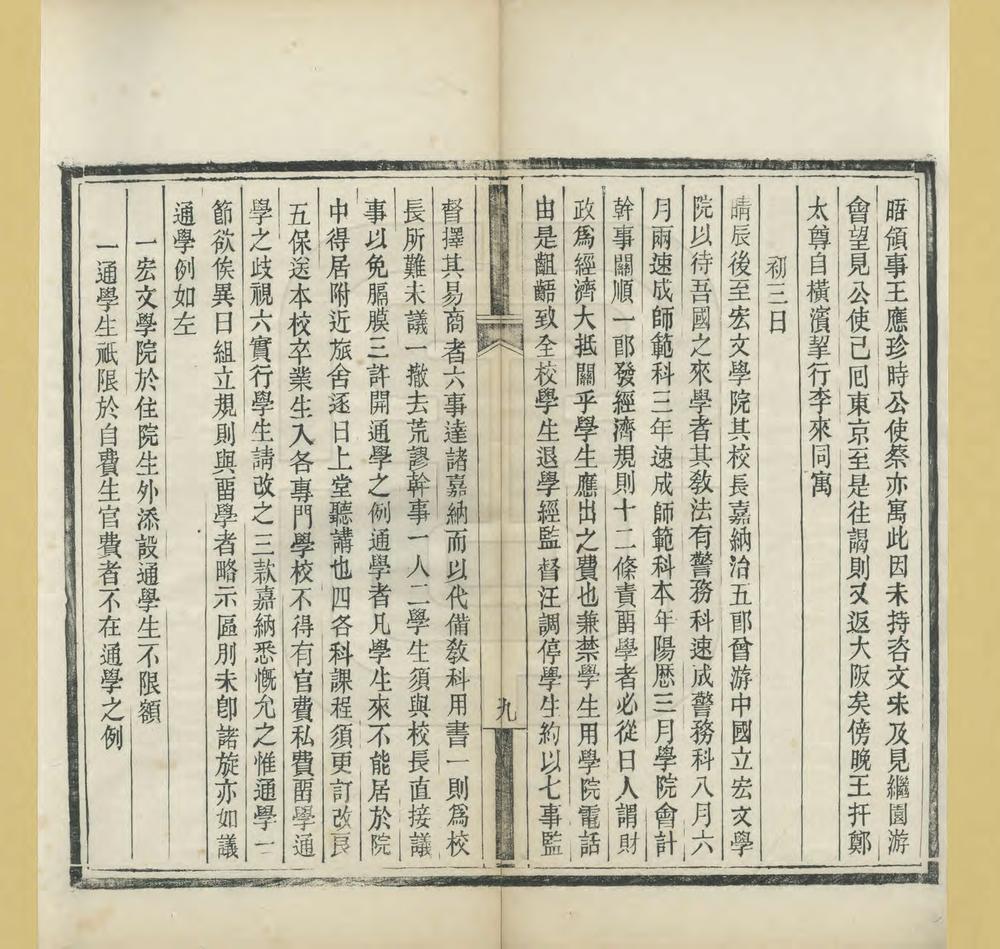 晤領事王應珍時公使蔡亦寓此因未持咨文未及見繼園游
會望見公使已囘東京至是往謁則又返大阪矣傍晚王扞鄭
太尊自橫濱挈行李來同寓
初三日
晴辰後至宏文學院其校長嘉納治五郎曾游中國立宏文學
院以待吾國之來學者其敎法有警務科速成警務科八月六
月兩速成師範科三年速成師範科本年陽歷三月學院會計
幹事關順一郎發經濟規則十二條責畱學者必從日人謂財
政爲經濟大抵關乎學生應出之費也兼禁學生用學院電話
由是齟齬致全校學生退學經監督汪調停學生約以七事監
九
督擇其易商者六事達諸嘉納而以代備敎科用書一則爲校
長所難未議一撤去荒謬幹事一人二學生須與校長直接議
事以免膈膜三許開通學之例通學者凡學生來不能居於院
中得居附近旅舍逐日上堂聽講也四各科課程須更訂改良
五保送本校卒業生入各專門學校不得有官費私費畱學通
學之歧視六實行學生請改之三款嘉納悉慨允之惟通學一
節欲俟異日組立規則與畱學者略示區別未卽諾旋亦如議
通學例如左
一宏文學院於住院生外添設通學生不限額
一通學生祇限於自費生官費者不在通學之例